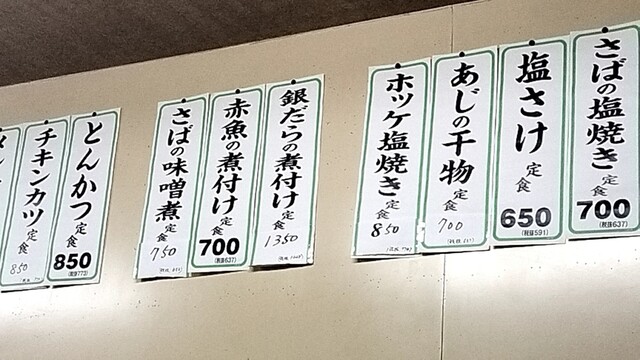 さばの塩焼き定食 700 (税抜637)
塩さけ定食 650 (税抜591)
あじの干物定食 700
ホッケ塩焼き定食 850
銀だらの煮付け定食 1350
赤魚の煮付け定食 700 (税抜637)
さばの味噌煮定食 750
とんかつ定食 850 (税抜773)
チキンカツ定食 850